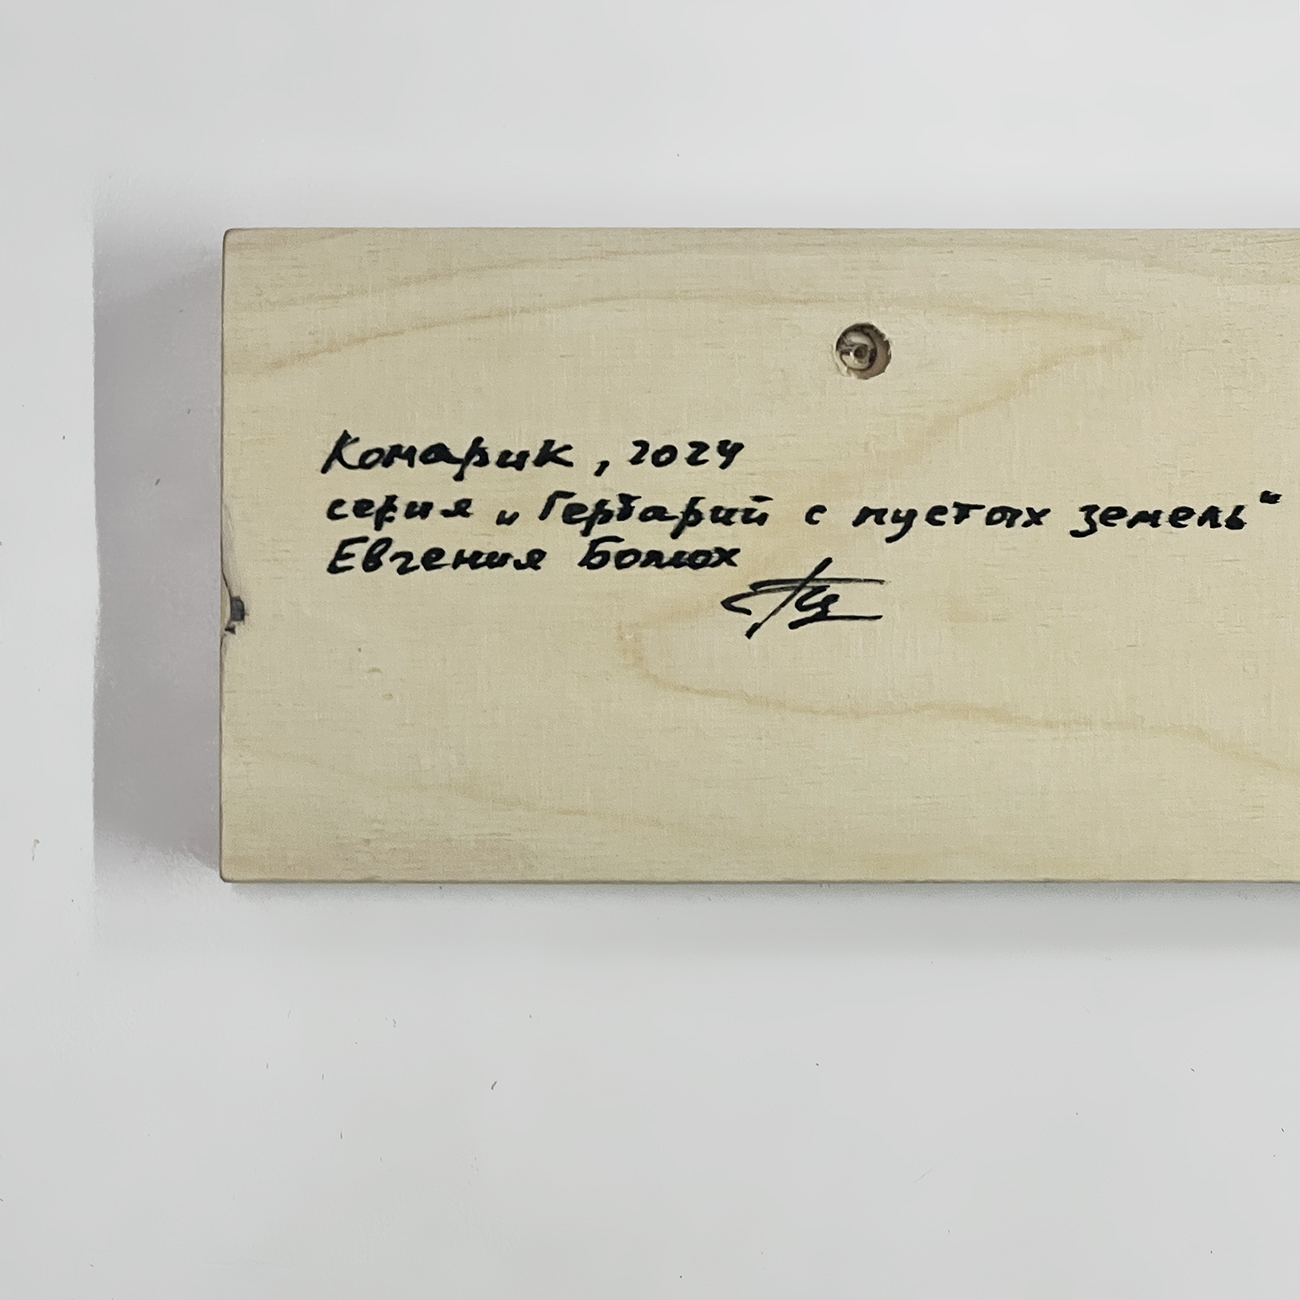 Комарик, 2024
серия „Гербарий с пустых земель“
Евгения Болюх